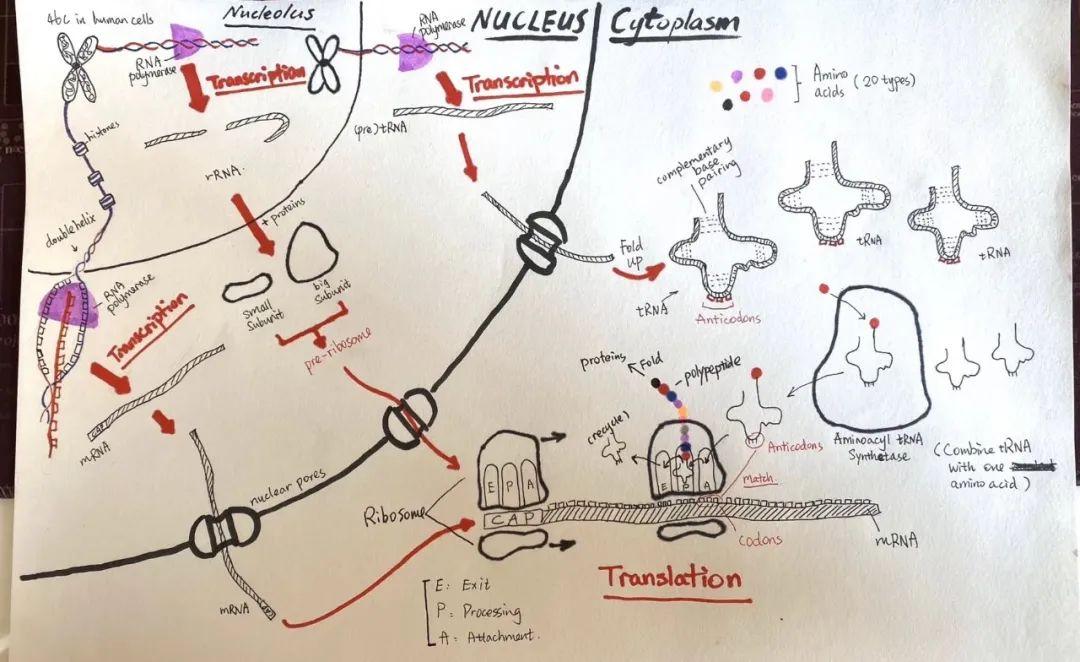 46C in human cells
Nucleolus
NUCLEUS
Cytoplasm
RNA
polymerase
Transcription
histones
rRNA
+ proteins
double helix
RNA
polymerase
Transcription
mRNA
small
subunit
big
subunit
pre-ribosome
RNA
polymerase
Transcription
(pre) tRNA
nuclear pores
mRNA
Amino
acids (20 types)
complementary
base
pairing
Fold
up
tRNA
Anticodons
tRNA
tRNA
Aminoacyl tRNA
Synthetase
(Combine tRNA
with one
amino acid)
proteins
Fold
polypeptide
(recycle)
E P A
Anticodons
Match
codons
mRNA
Ribosome
E P A
CAP
CAP
E: Exit
P: Processing
A: Attachment.
Translation